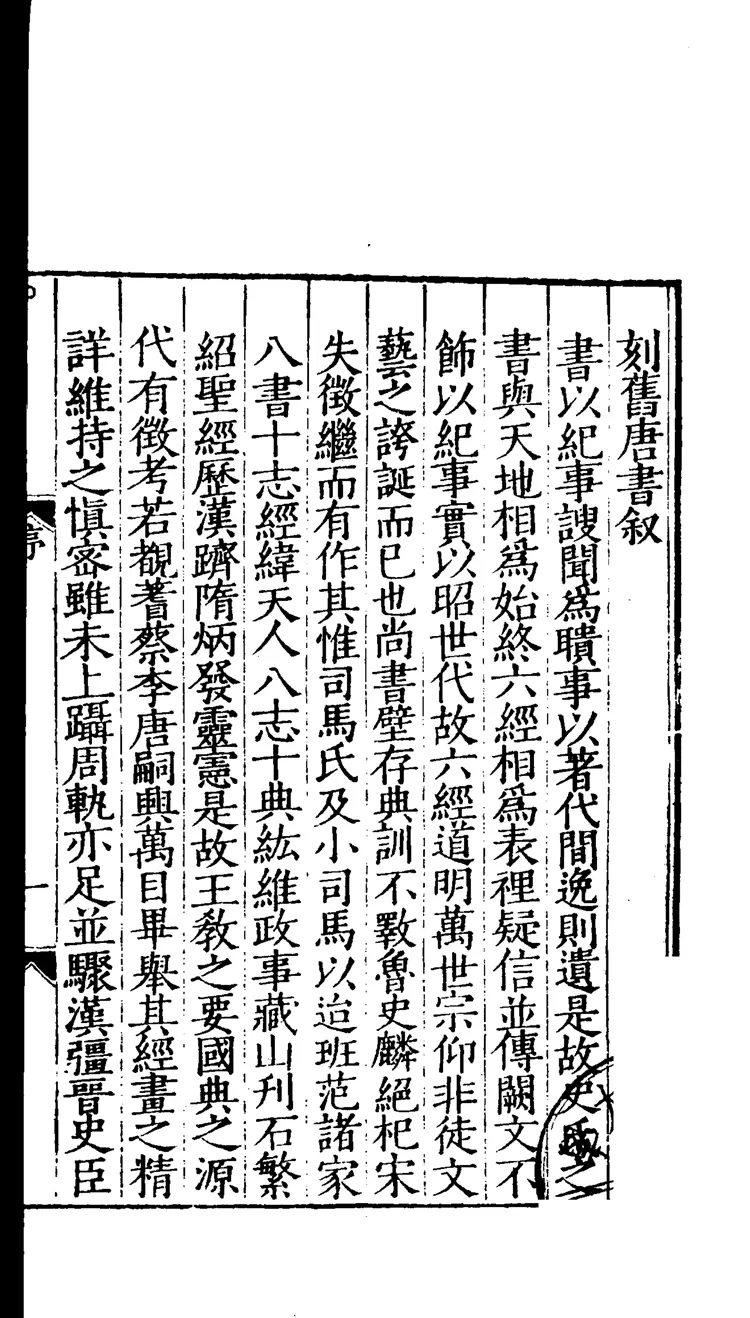 刻舊唐書叙
書以紀事謏聞爲聵事以著代間逸則遺是故史
書與天地相爲始終六經相爲表裡疑信並傳闕文不
飾以紀事實以昭世代故六經道明萬世宗仰非徒文
藝之誇誕而已也尚書壁存典訓不斁魯史麟絕杞宋
失徵繼而有作其惟司馬氏及小司馬以迨班范諸家
八書十志經緯天人八志十典紘維政事藏山刋石繁
紹聖經歷漢躋隋炳發靈憲是故王教之要國典之源
代有徵考若覩蓍蔡李唐嗣興萬目畢舉其經畫之精
詳維持之慎密雖未上躡周軌亦足並驟漢疆晉史臣
序
一